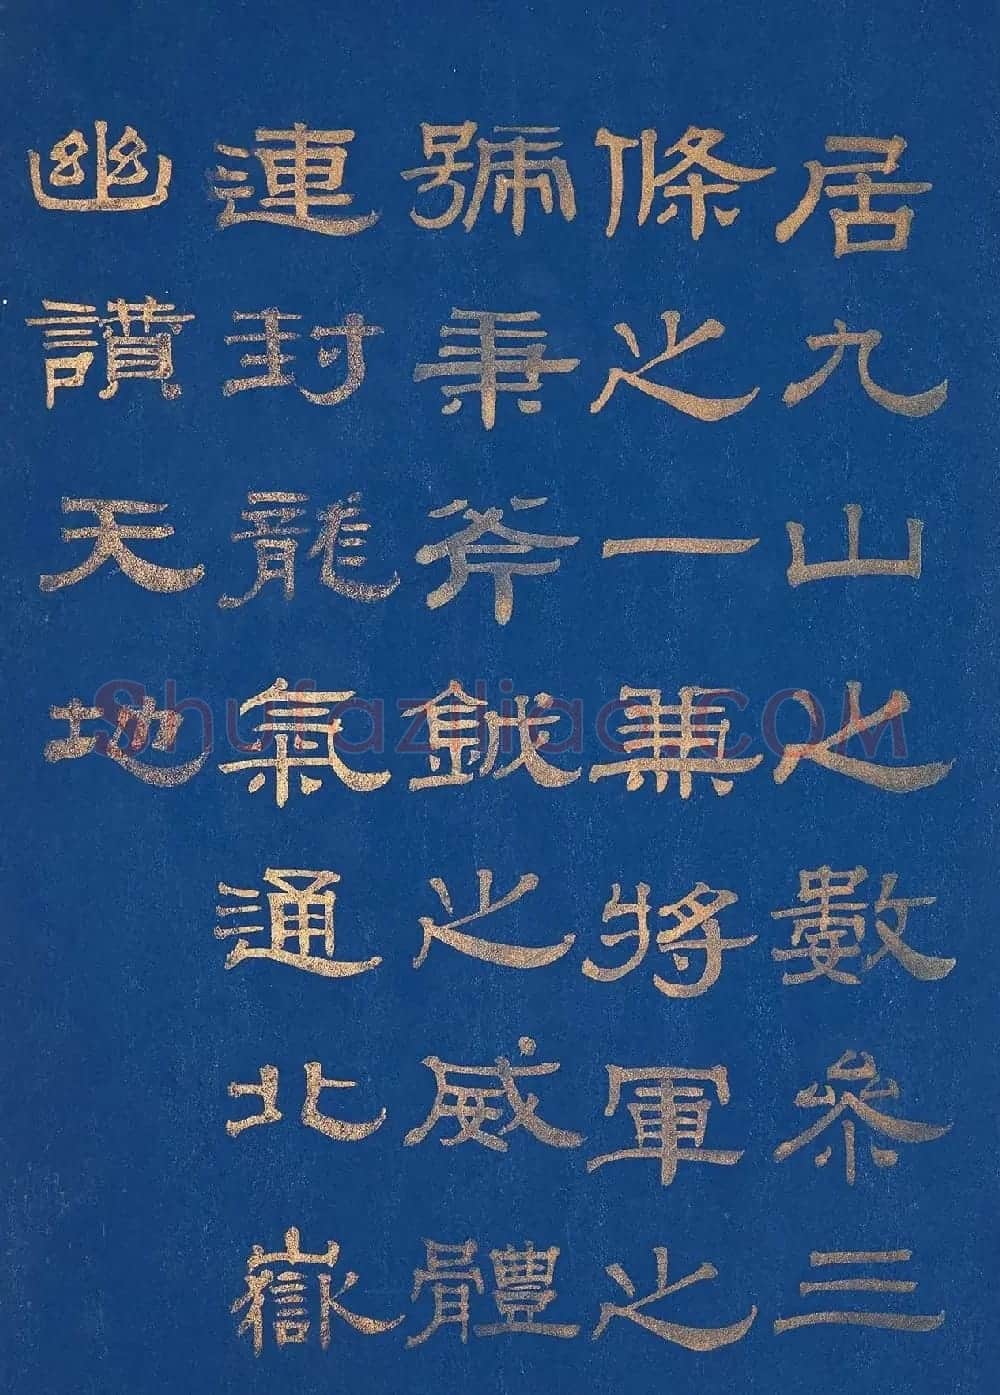 居九山之數參三
條之一兼將軍之
號秉斧鉞之威體
連封龍氣通北嶽
幽讚天地
Shufaziliao.COM